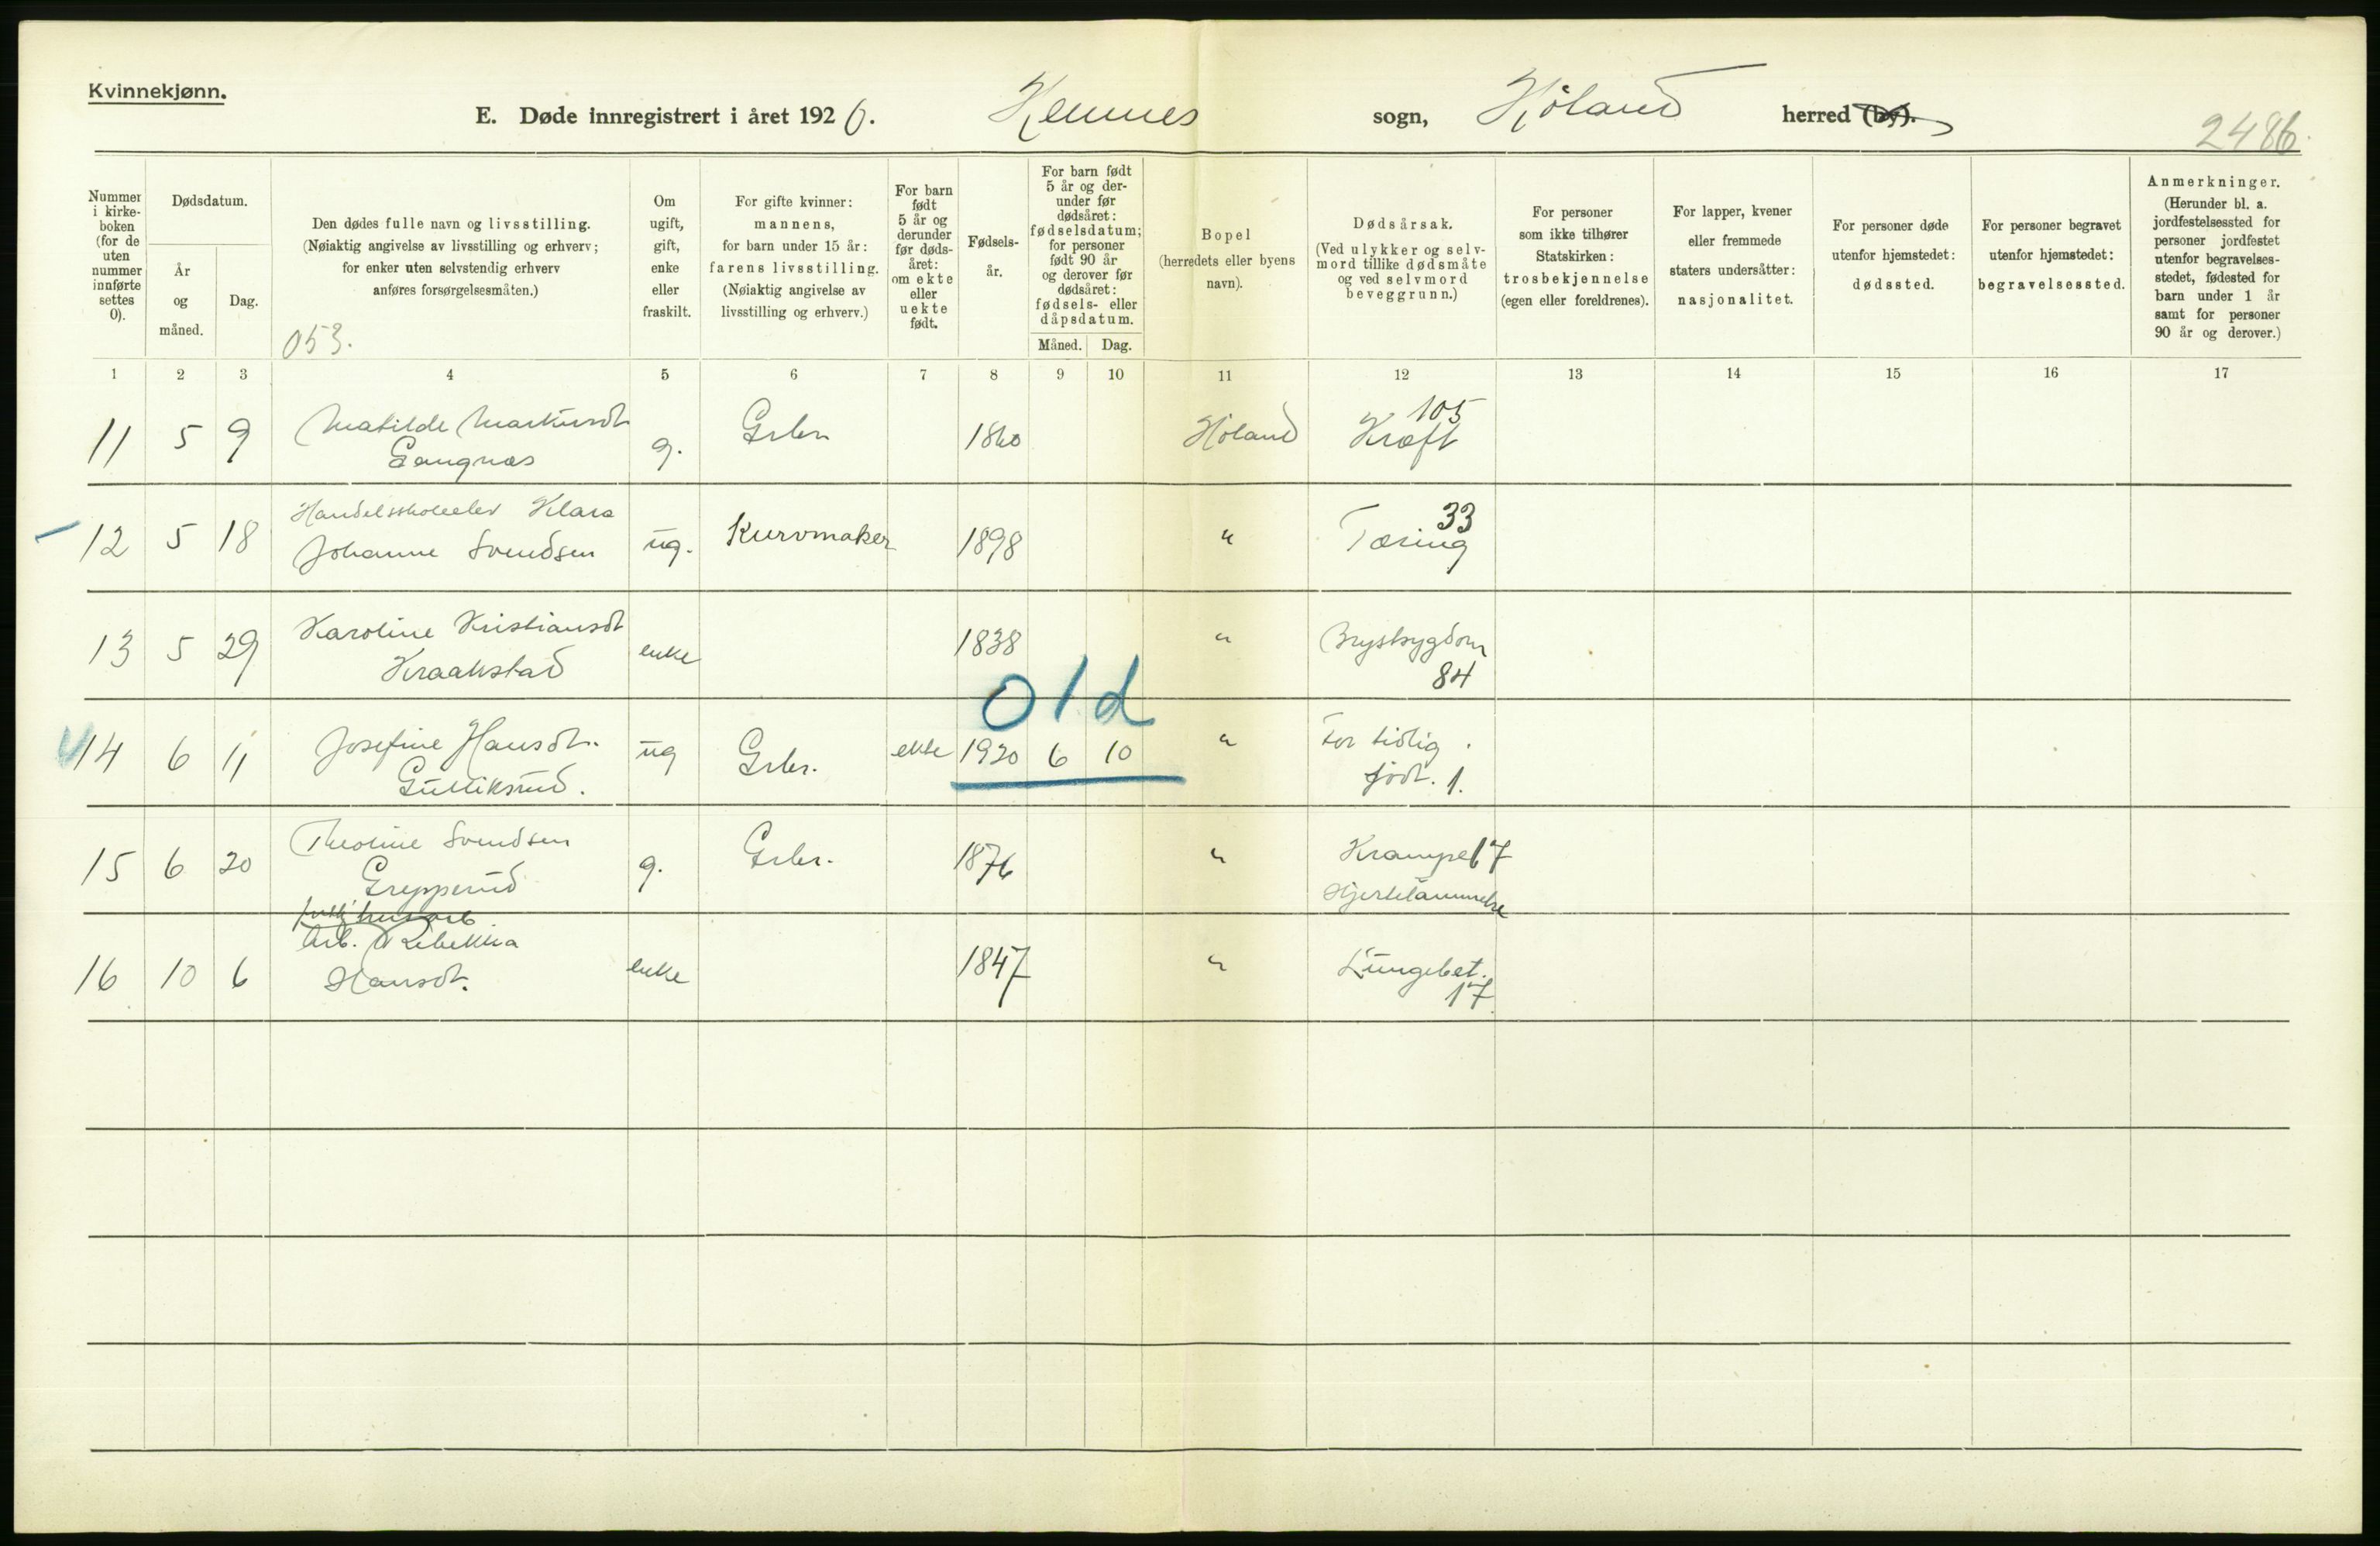 Kvinnekjønn.
E. Døde innregistrert i året 1920. Hemnes sogn, Höland herred (by).
2486.
Nummer i kirke-boken (for de uten nummer innførte settes 0).
Dødsdatum.
År og måned.
Dag.
Den dødes fulle navn og livsstilling.
(Nøiaktig angivelse av livsstilling og erhverv;
for enker uten selvstendig erhverv
anføres forsørgelsesmåten.)
053.
Om ugift, gift, enke eller fraskilt.
For gifte kvinner:
mannens,
for barn under 15 år:
farens livsstilling.
(Nøiaktig angivelse av
livsstilling og erhverv.)
For barn født 5 år og derunder før døds-året: om ekte eller uekte født.
Fødsels-år.
For barn født 5 år og der-under før dødsåret: fødselsdatum; for personer født 90 år og derover før dødsåret: fødsels- eller dåpsdatum.
Måned. Dag.
Bopel
(herredets eller byens
navn).
Dødsårsak.
(Ved ulykker og selv-
mord tillike dødsmåte
og ved selvmord
beveggrunn.)
For personer
som ikke tilhører
Statskirken:
trosbekjennelse
(egen eller foreldrenes).
For lapper, kvener
eller fremmede
staters undersåtter:
nasjonalitet.
For personer døde
utenfor hjemstedet:
dødssted.
For personer begravet
utenfor hjemstedet:
begravelsessted.
Anmerkninger.
(Herunder bl. a.
jordfestelsessted for
personer jordfestet
utenfor begravelses-
stedet, fødested for
barn under 1 år
samt for personer
90 år og derover.)
1 2 3 4 5 6 7 8 9 10 11 12 13 14 15 16 17
11 5 9 Matilde Markusdt g. Grbr. 1860 Höland Kræft 105
12 5 18 Handelsskoleelev Klara
Johanne Svendsen ug. Kurvmaker 1898 " Tæring 33
13 5 29 Karoline Kristiansdt
Kraakstad enke 1838 " Brystsygdom 84
old
14 6 11 Josefine Hansdt.
Gulliksrud. ug Grbr. ekte 1920 6 10 " For tidlig
født. 1.
15 6 20 Theoline Svendsen
Grepperud g. Grbr. 1876 " Krampe 67
Hjertelammelse
16 10 6 Arb. Rebekka
Hansdt. enke 1847 " Lungebet.
17